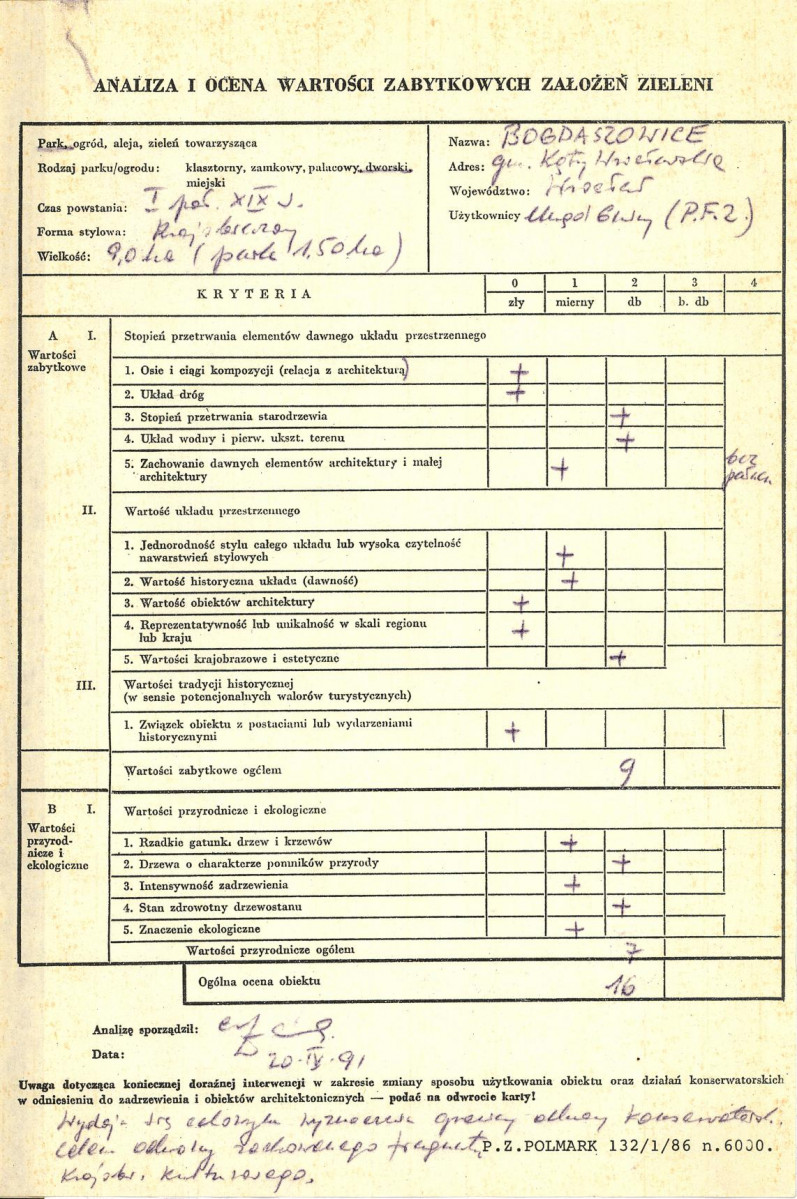 ANALIZA I OCENA WARTOŚCI ZABYTKOWYCH ZAŁOŻEŃ ZIELENI
Park, ogród, aleja, zieleń towarzysząca
Rodzaj parku/ogrodu: klasztorny, zamkowy, pałacowy, dworski,
miejski
Czas powstania: I poł. XIX w.
Forma stylowa: Krajobrazowy
Wielkość: 9,0 ha (park 1,50 ha)
Nazwa: BOGDASZOWICE
Adres: gm. Kąty Wrocławskie
Województwo: Wrocław
Użytkownicy Urząd Gminy (P.F.Z.)
KRYTERIA
0 1 2 3 4
zły mierny db b. db
A I. Stopień przetrwania elementów dawnego układu przestrzennego
Wartości
zabytkowe
1. Osie i ciągi kompozycji (relacja z architekturą) +
2. Układ dróg +
3. Stopień przetrwania starodrzewia +
4. Układ wodny i pierw. ukszt. terenu +
5. Zachowanie dawnych elementów architektury i małej
architektury +
bez
pałacu
II. Wartość układu przestrzennego
1. Jednorodność stylu całego układu lub wysoka czytelność
nawarstwień stylowych +
2. Wartość historyczna układu (dawność) +
3. Wartość obiektów architektury +
4. Reprezentatywność lub unikalność w skali regionu
lub kraju +
5. Wartości krajobrazowe i estetyczne +
III. Wartości tradycji historycznej
(w sensie potencjonalnych walorów turystycznych)
1. Związek obiektu z postaciami lub wydarzeniami
historycznymi +
Wartości zabytkowe ogółem 9
B I. Wartości przyrodnicze i ekologiczne
Wartości
przyrod-
nicze i
ekologiczne
1. Rzadkie gatunki drzew i krzewów +
2. Drzewa o charakterze pomników przyrody +
3. Intensywność zadrzewienia +
4. Stan zdrowotny drzewostanu +
5. Znaczenie ekologiczne +
Wartości przyrodnicze ogółem 7
Ogólna ocena obiektu 16
Analizę sporządził:
Data: 20-IV-91
Uwaga dotycząca koniecznej doraźnej interwencji w zakresie zmiany sposobu użytkowania obiektu oraz działań konserwatorskich
w odniesieniu do zadrzewienia i obiektów architektonicznych — podać na odwrocie karty!
Wydaje się celowym wyznaczenie granicy ochrony konserwatorsk.
celem ochrony zachowanego fragmentu
P.Z.POLMARK 132/1/86 n.6000.
Krajobr. Kulturowego.